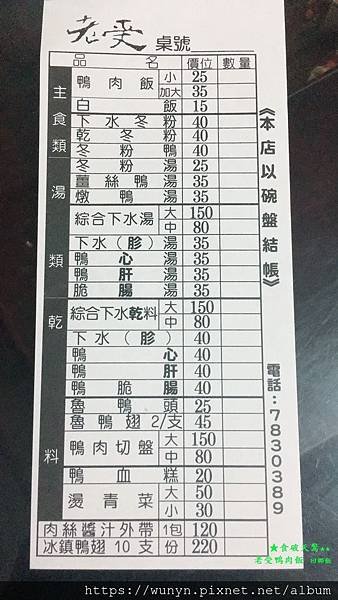 老受 桌號
品名 價位 數量
主食類
鴨肉飯 小 25
加大 35
白飯 15
下水冬粉 40
乾冬粉 40
冬粉鴨 40
湯類
冬粉湯 25
薑絲鴨湯 35
燉鴨湯 35
綜合下水湯 大 150
中 80
下水(胗)湯 35
鴨心湯 35
鴨肝湯 35
脆腸湯 35
乾料
綜合下水乾料 大 150
中 80
下水(胗) 40
鴨心 40
鴨肝 40
鴨脆腸 40
魯鴨頭 25
魯鴨翅2/支 45
鴨肉切盤 大 150
中 80
鴨血糕 20
燙青菜 大 50
小 30
肉絲醬汁外帶 1包 120
冰鎮鴨翅10支 份 220
《本店以碗盤結帳》
電話:7830389
★食破天驚★★
老受鴨肉飯
https://wunyn.pixnet.net/album